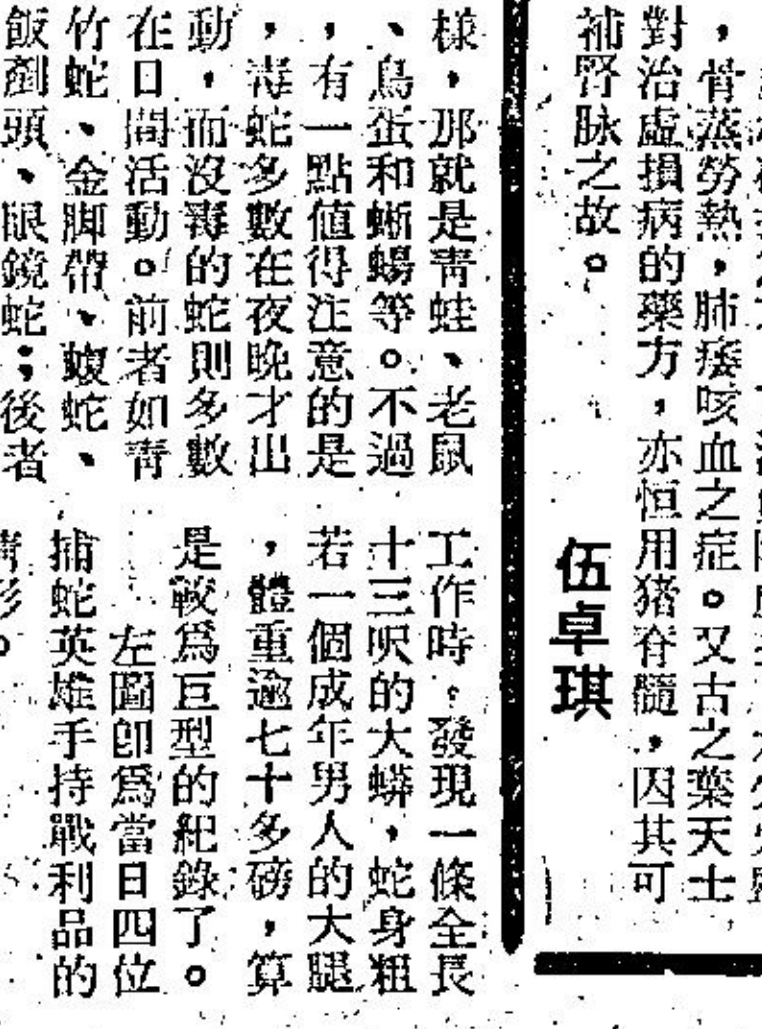 ，骨蒸勞熱，肺痿咳血之症。又古之葉天士
對治虛損病的藥方，亦恒用猪脊髓，因其可
補腎脉之故。
伍卓琪
樣，那就是靑蛙、老鼠
、鳥蛋和蜥蜴等。不過
，有一點値得注意的是
，毒蛇多數在夜晚才出
動，而沒毒的蛇則多數
在日間活動。前者如靑
竹蛇、金脚帶、蝮蛇、
飯剷頭、眼鏡蛇；後者
工作時，發現一條全長
十三呎的大蟒，蛇身粗
若一個成年男人的大腿
，體重逾七十多磅，算
是較爲巨型的紀錄了。
左圖卽爲當日四位
捕蛇英雄手持戰利品的